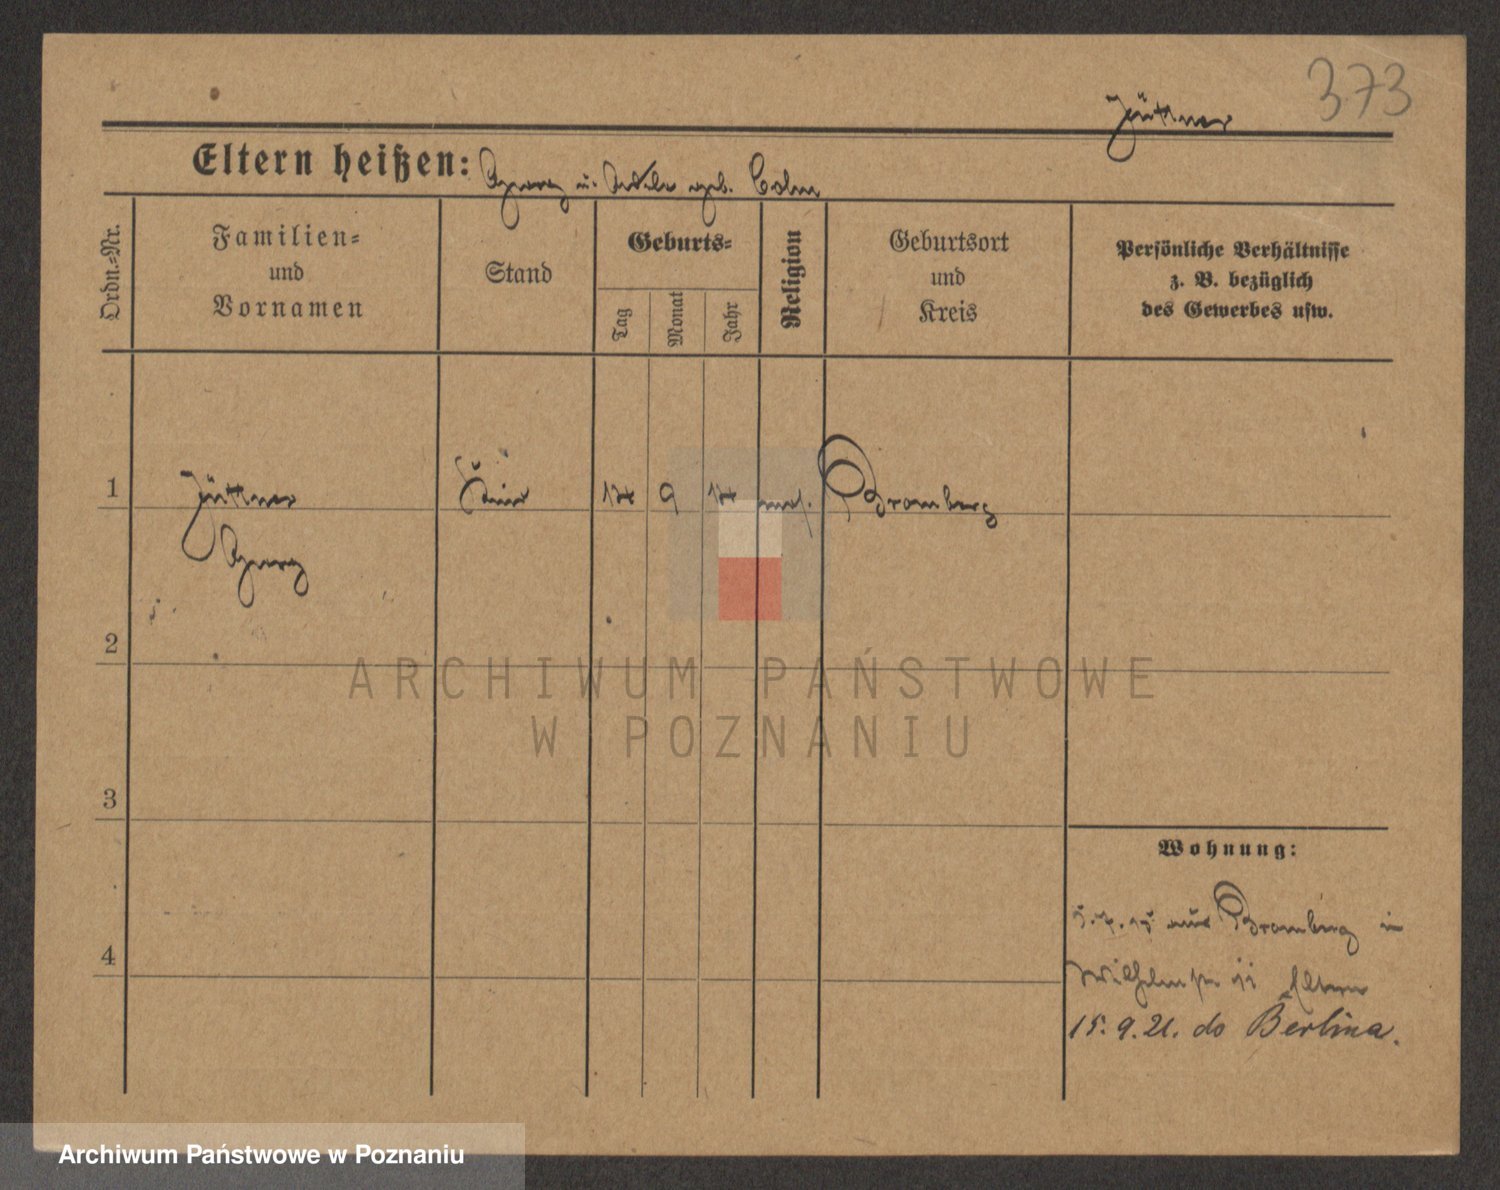 373
Jüttner
Eltern heißen: Georg u. geb. Cohn
Ordn.-Nr.
Familien-
und
Vornamen
Stand
Geburts-
Tag
Monat
Jahr
Religion
Geburtsort
und
Kreis
Persönliche Verhältnisse
z. B. bezüglich
des Gewerbes usw.
1 Jüttner 14 9 14 Bromberg
Georg
2
ARCHIWUM PAŃSTWOWE
W POZNANIU
3
Wohnung:
5.7.15 aus Bromberg in
4
Wilhelmstr 11 Eltern
15.9.21. do Berlina.
Archiwum Państwowe w Poznaniu